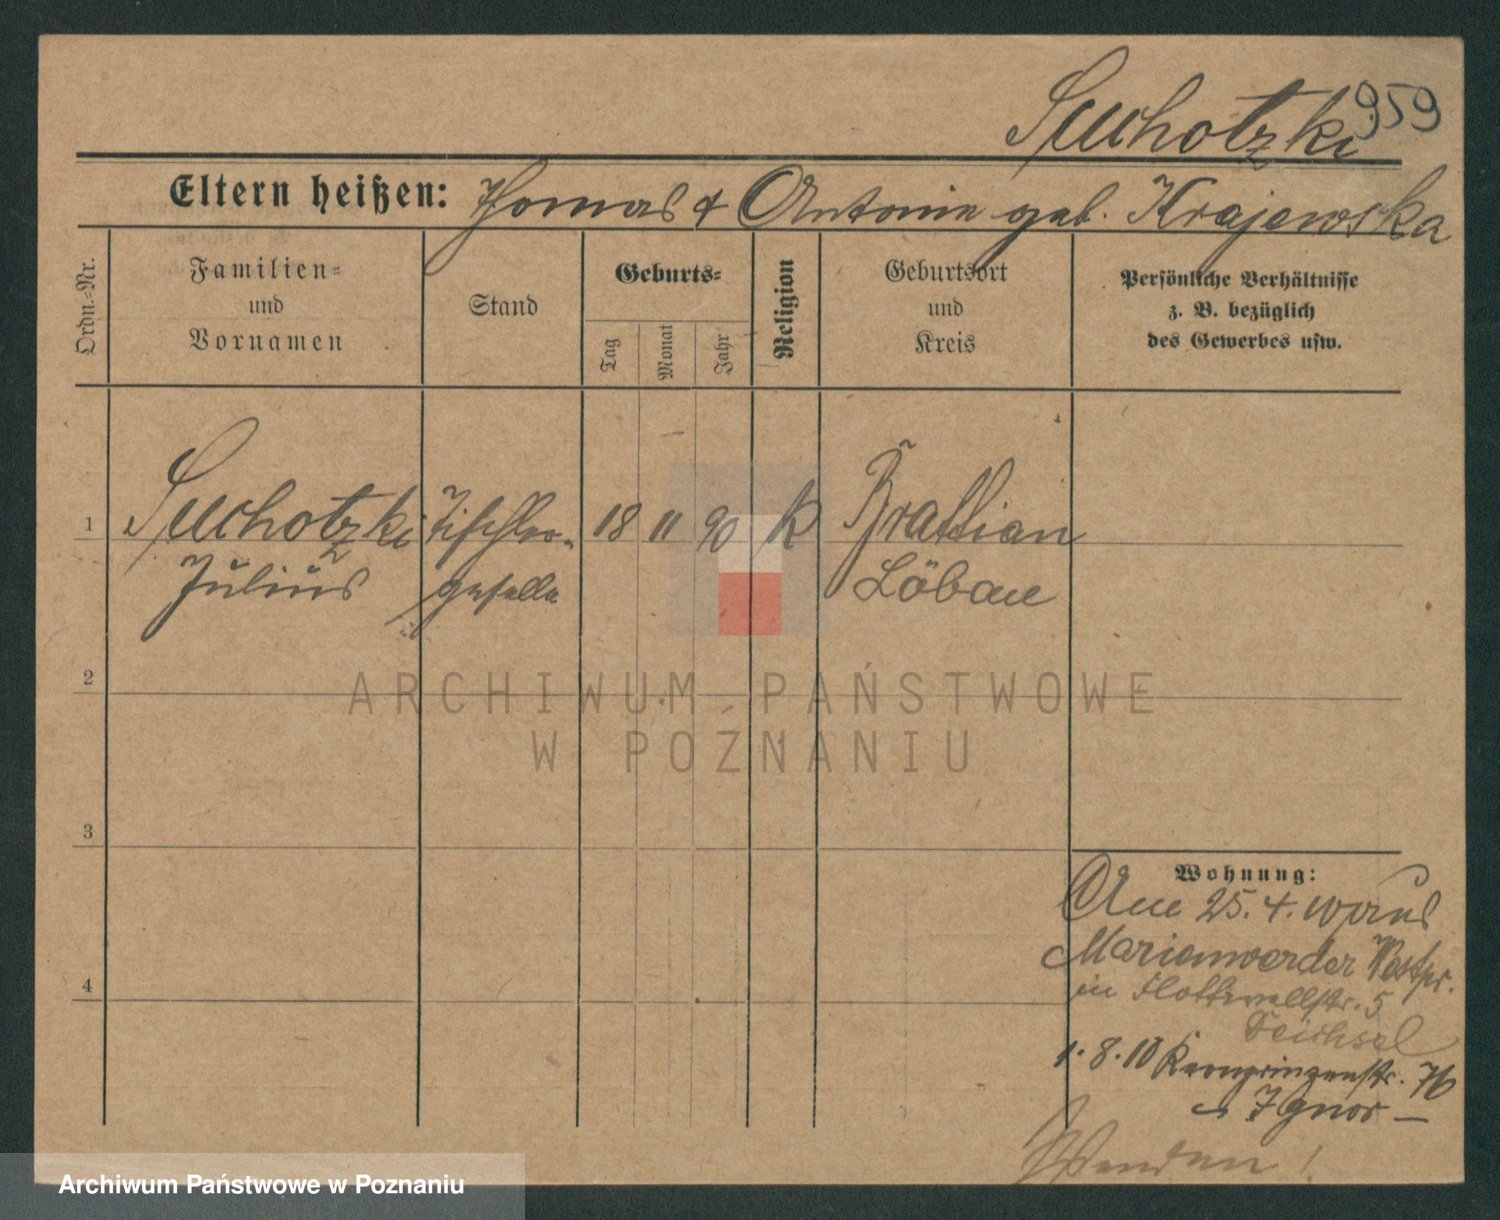 Suchotzki 959
Eltern heißen: Thomas & Antonie geb. Krajewska
Ordn.=Nr.
Familien=
und
Vornamen
Stand
Geburts=
Tag
Monat
Jahr
Religion
Geburtsort
und
Kreis
Persönliche Verhältnisse
z. B. bezüglich
des Gewerbes usw.
1 Suchotzki Tischler- 18 11 90 k Brattian
Julius geselle Löbau
2
3
4
Wohnung:
25. 4.
Marienwerder Westpr.
in Flottwellstr. 5
Teichsel
1. 8. 10 Kronprinzenstr. 76
Wenden!
ARCHIWUM PAŃSTWOWE
W POZNANIU
Archiwum Państwowe w Poznaniu